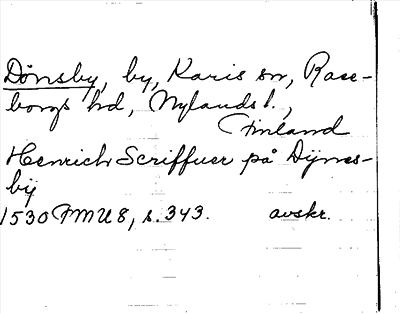 Dönsby, by, Karis sn, Rase-
borgs hd, Nylands l.,
Finland
Henrich Scriffuer på Dÿnes-
bÿ
1530 FMU 8, s. 343. avskr.